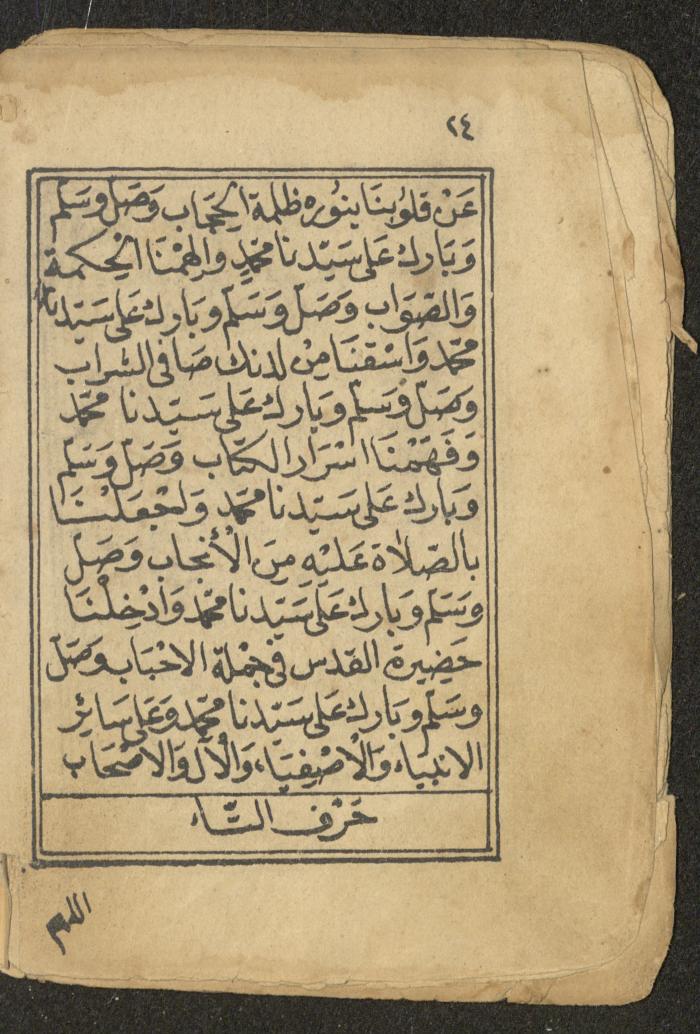 ٢٤
عَنْ قلُوُبنَا بنوُره ظلمة الحِجَاب وَصَلّ وسَلّم
وَبَارك عَلى سَيّدنا محمّدٍ وإلهمْنَا الْحِكمة
وَالصّوَاب وَصَلّ وَسَلّم وبَارك عَلى سَيّدنا
محمّد وَاسْقنَا مِنْ لدنك صَافى الشراب
وَصَلّ وَسَلّم وبَارك عَلى سَيّدنا محمّد
وَفَهّمْنَا اسْرَار الكتَاب وَصَلّ وَسَلّم
وَبَارك عَلى سَيّدنا محمّد وَاجْعَلْنَا
بالصّلاة عَليْه مِنَ الْأنجَاب وَصَلّ
وسَلّم وبَارك عَلى سَيّدنا محمّد وَادْخِلْنَا
حَضِيرة القدس فى جمْلة الاحْبَاب وَصَلّ
وسَلّم وبَارك عَلى سَيّدنا محمّد وَعَلى سَائِر
الانبيَاء وَالْاصْفِيَاء وَالْآل وَالاصْحَاب
حَرْف التّاء
اللهم